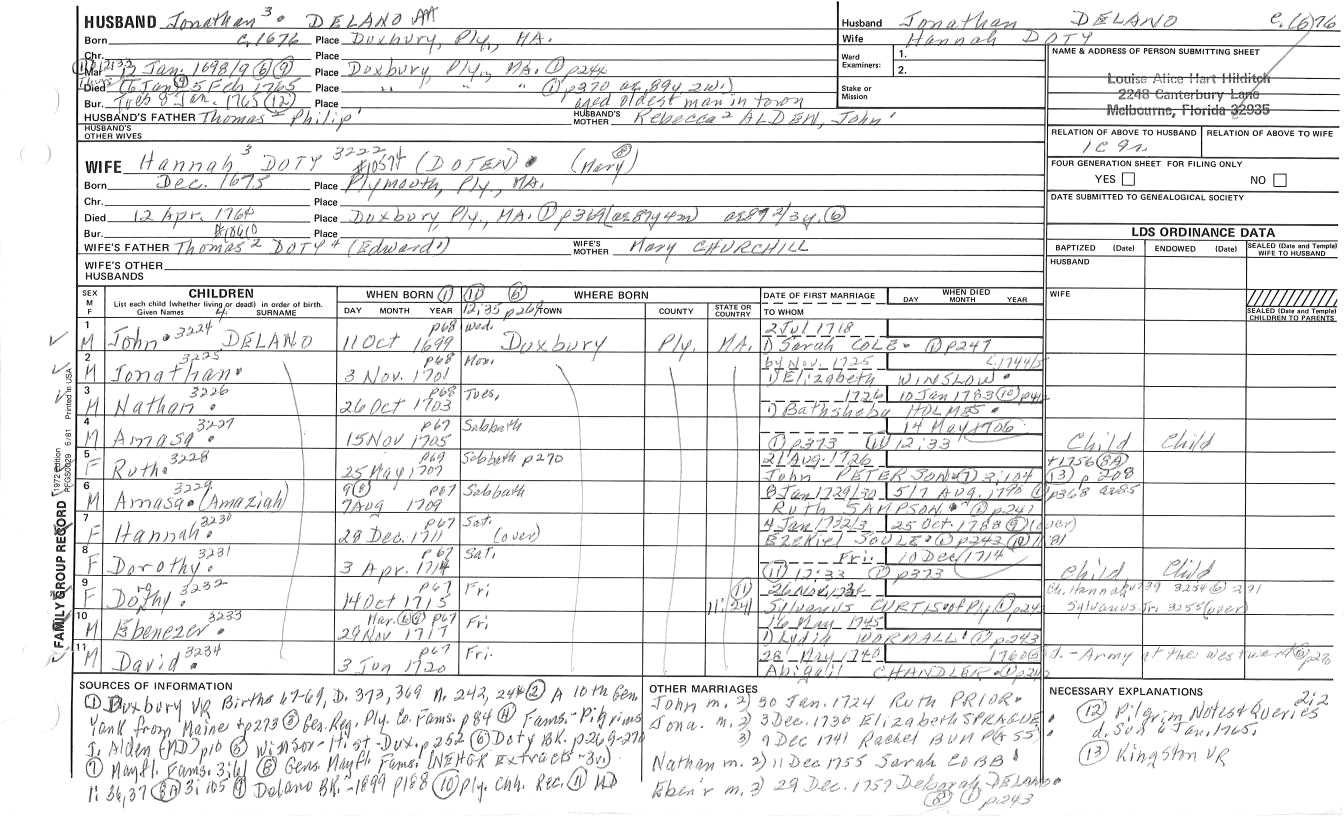 HUSBAND Jonathan 3. DELANO AA
Born c. 1676 Place Duxbury, Ply., MA.
Chr. Place
Mar 12 Jan. 1698/9 (6) (9) Place Duxbury, Ply., MA. (1) p244
Died (6 Jan) 5 Feb 1765 Place " " " (1) p370 (ae 89y 2w.)
Bur. Tues 8 Jan. 1765 (12) Place aged oldest man in town
HUSBAND'S FATHER Thomas 2 Philip' HUSBAND'S MOTHER Rebecca 2 ALDEN, John'
HUSBAND'S OTHER WIVES
Husband Jonathan DELANO c. 1676
Wife Hannah DOTY
Ward Examiners: 1. 2.
Stake or Mission
NAME & ADDRESS OF PERSON SUBMITTING SHEET
Louise Alice Hart Hilditch
2248 Canterbury Lane
Melbourne, Florida 32935
RELATION OF ABOVE TO HUSBAND RELATION OF ABOVE TO WIFE
1C 9r.
FOUR GENERATION SHEET FOR FILING ONLY
YES NO
DATE SUBMITTED TO GENEALOGICAL SOCIETY
WIFE Hannah 3 DOTY 3222 #10574 (DOTEN) (Mary) (8)
Born Dec. 1675 Place Plymouth, Ply., MA.
Chr. Place
Died 12 Apr. 1764 Place Duxbury Ply., MA. (1) p369 (ae 89y 4m) ae 89 2/3y, (6)
Bur. #10610 Place
WIFE'S FATHER Thomas 2 DOTY + (Edward') WIFE'S MOTHER Mary CHURCHILL
WIFE'S OTHER HUSBANDS
LDS ORDINANCE DATA
BAPTIZED (Date) ENDOWED (Date) SEALED (Date and Temple) WIFE TO HUSBAND
HUSBAND
WIFE
SEALED (Date and Temple) CHILDREN TO PARENTS
SEX M F CHILDREN List each child (whether living or dead) in order of birth. Given Names 4. SURNAME
WHEN BORN (1) DAY MONTH YEAR
(11) (6) WHERE BORN 12:35 p269 TOWN COUNTY STATE OR COUNTRY
DATE OF FIRST MARRIAGE TO WHOM WHEN DIED DAY MONTH YEAR
1 M John 3224 DELANO 11 Oct 1699 p68 Wed. Duxbury Ply. MA. 2 Jul 1718
1) Sarah COLE (1) p247
2 M Jonathan 3225 3 Nov. 1701 p68 Mon. by Nov. 1725 c. 1744/5
1) Elizabeth WINSLOW
3 M Nathan 3226 26 Oct 1703 p68 Tues, 1726 10 Jan 1783 (10) p412
1) Bathsheba HOLMES
4 M Amasa 3227 15 Nov 1705 p67 Sabbath 14 May 1706
(1) p373 (11) 12:33 Child Child
5 F Ruth 3228 25 May 1707 p69 Sabbath p270 21 Aug. 1726 +1756 (8A)
John PETERSON (7) 2:104 (13) p 208
6 M Amasa (Amaziah) 3229 9 (8) 7 Aug 1709 p67 Sabbath 8 Jan 1729/30 5/7 Aug. 1790 (1) p368 ae 85
Ruth SAMPSON (1) p241
7 F Hannah 3230 28 Dec. 1711 p67 Sat. (over) 4 Jan 1732/3 25 Oct. 1788 (9) (over)
Ezekiel SOULE (1) p243 (10) 1:81
8 F Dorothy 3231 3 Apr. 1714 p67 Sat. Fri. 10 Dec 1714
(11) 12:33 (1) p373 Child Child
9 F Dorothy 3232 14 Oct 1715 p67 Fri (11) 11:241 26 Nov. Ch. Hannah 3254 (6) 291
Sylvanus CURTIS of Ply. (1) p242 Sylvanus Jr. 3255 (over)
10 M Ebenezer 3233 Mar. (6) (9) 29 Nov 1717 p67 Fri 16 May 1745
1) Lydia WORMALL (1) p243
11 M David 3234 3 Jun 1720 p67 Fri. 28 May 1740 1760 d. - Army at the westward (6) p270
Abigail CHANDLER (1) p242
FAMILY GROUP RECORD 1972 edition PFGS0029 6/81 Printed in USA
SOURCES OF INFORMATION
(1) Duxbury VR Births 67-69, D. 373, 369 M. 242, 244 (2) A 10th Gen.
Yank from Maine +p273 (3) Gen. Reg. Ply. Co. Fams. p84 (4) Fams. - Pilgrims
J. Alden (MD) p10 (5) Winsor - Hist - Dux. p252 (6) Doty BK. p269-270
(7) Mayfl. Fams. 3:61 (8) Gens. Mayfl. Fams. (NEHGR Extracts - 3v.)
1: 36,37 (8A) 3:105 (9) Delano BK. - 1899 p188 (10) Ply. Chh. Rec. (11) MD
OTHER MARRIAGES
John m. 2) 30 Jan. 1724 Ruth PRIOR
Jona. m. 2) 3 Dec. 1730 Elizabeth SPRAGUE
3) 9 Dec 1741 Rachel BUMPASS
Nathan m. 2) 11 Dec 1755 Sarah COBB
Eben'r m. 2) 29 Dec. 1757 Deborah DELANO
(8) (1) p.243
NECESSARY EXPLANATIONS
2:2
(12) Pilgrim Notes & Queries
d. Sun 6 Jan. 1765.
(13) Kingston VR